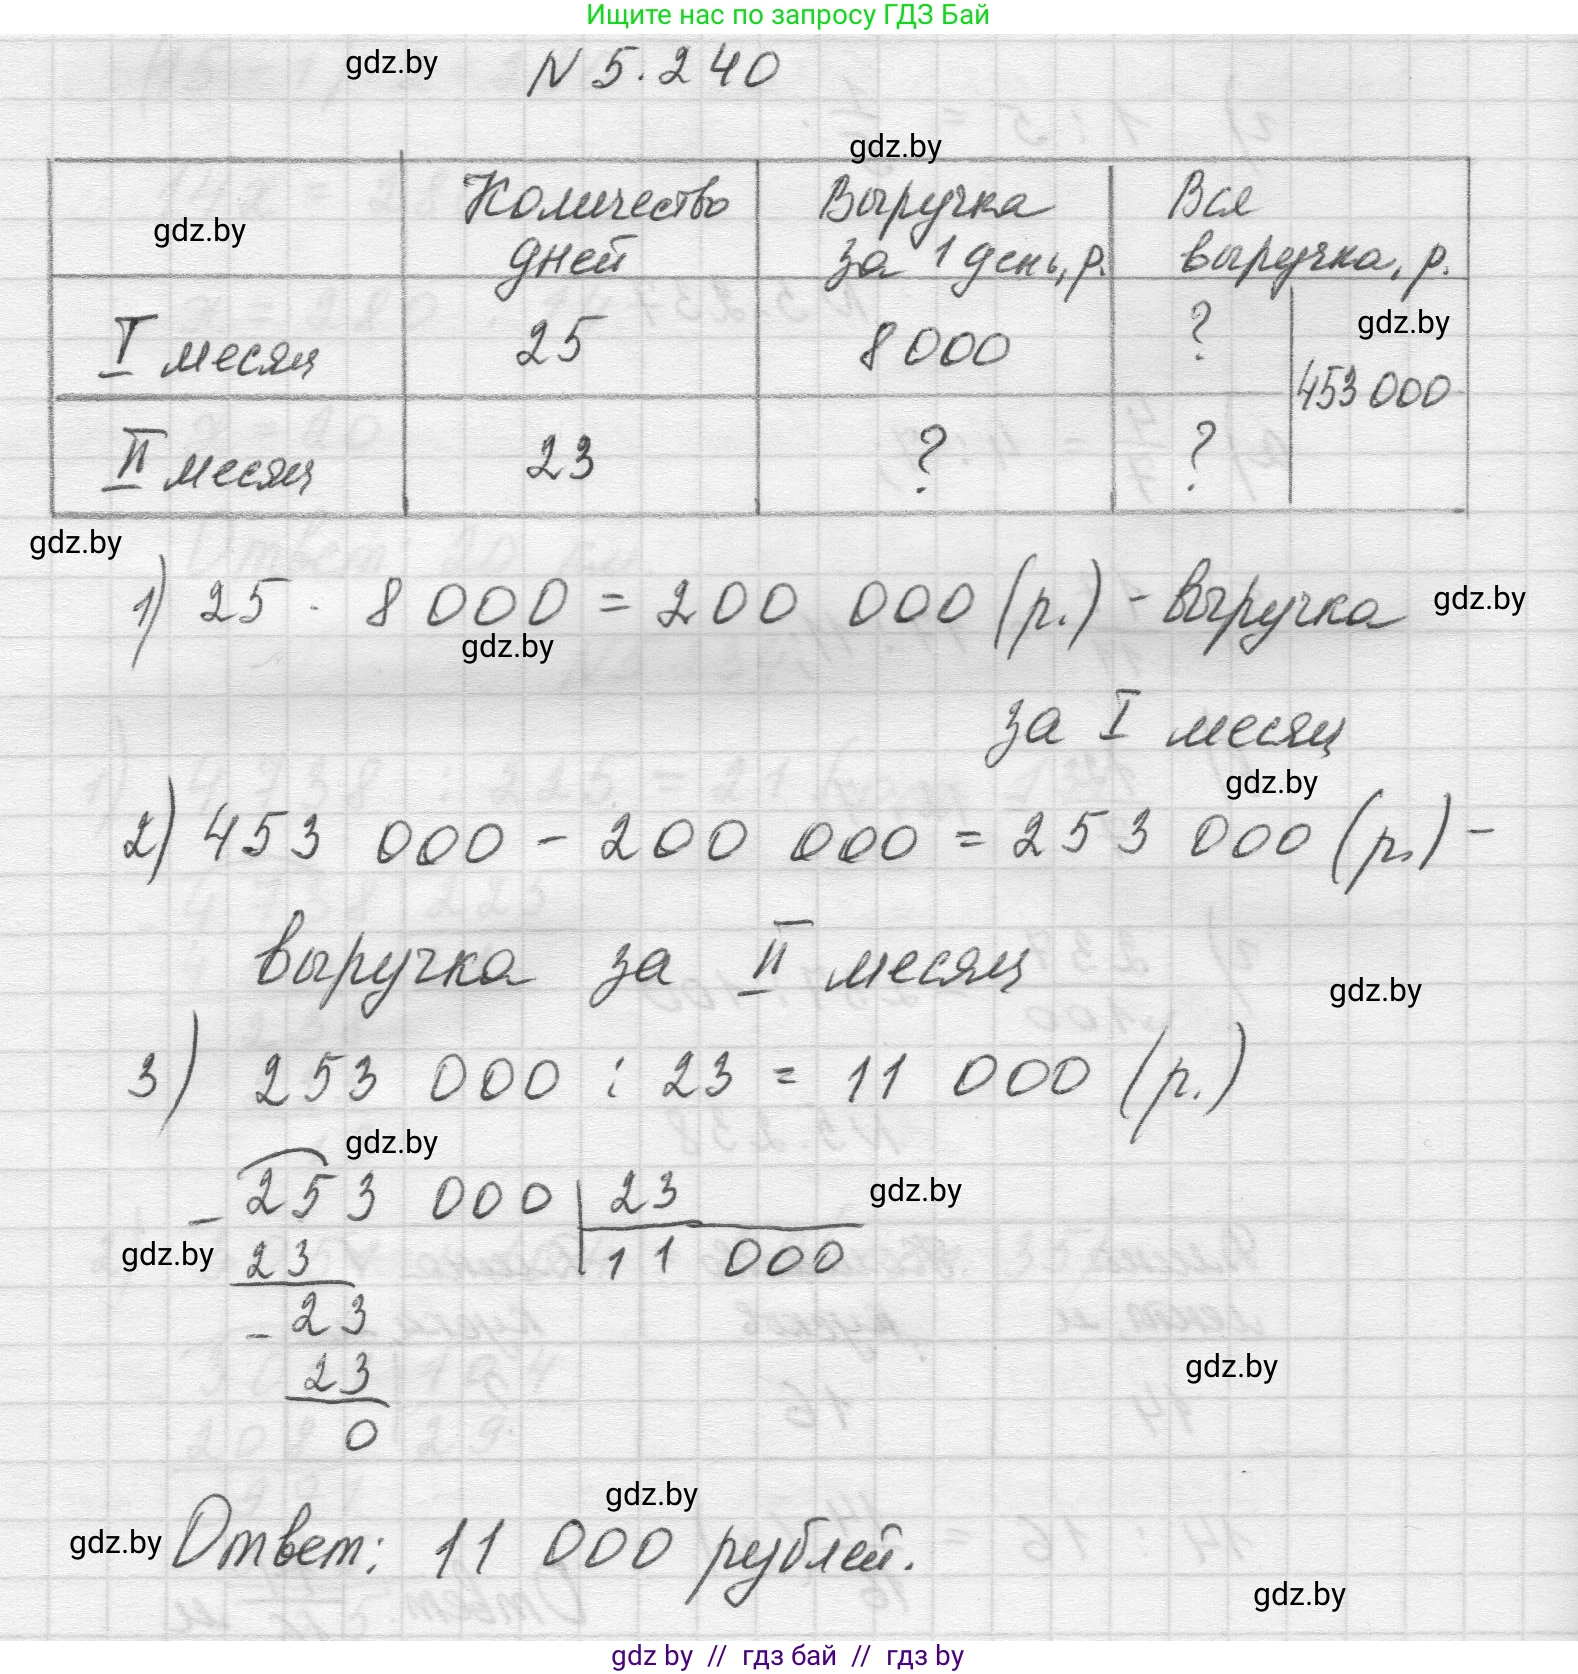 Ищите нас по запросу ГДЗ Бай
gdz.by
N 5.240
gdz.by
gdz.by
Количество дней
Выручка за 1 день, р.
Вся выручка, р.
I месяц
25
8 000
?
gdz.by
453 000
II месяц
23
?
?
gdz.by
1) 25 · 8 000 = 200 000 (р.) - выручка
gdz.by
gdz.by
за I месяц
gdz.by
2) 453 000 - 200 000 = 253 000 (р.) -
выручка за II месяц
gdz.by
3) 253 000 : 23 = 11 000 (р.)
gdz.by
- 253 000 | 23
gdz.by
gdz.by
23
11 000
- 23
23
gdz.by
0
gdz.by
gdz.by
Ответ: 11 000 рублей.
gdz.by
gdz.by // гдз бай // гдз by